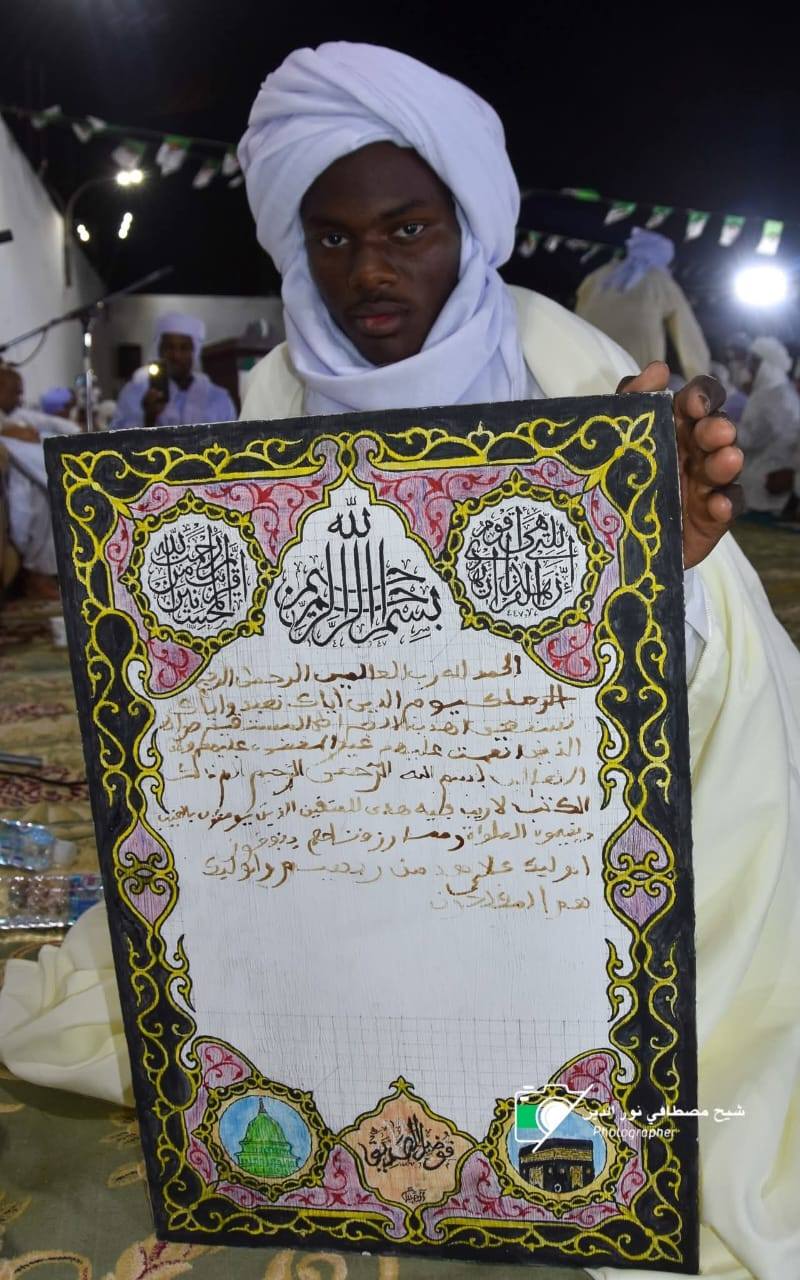 لله
بسم الله الرحمن الرحيم
إن رحمت الله قريب من المحسنين
إن هذا القرآن يهدي للتي هي أقوم
الحمد لله رب العالمين الرحمن الرحيم
ملك يوم الدين اياك نعبد واياك
نستعين اهدنا الصراط المستقيم صراط
الذين انعمت عليهم غير المغضوب عليهم ولا
الضالين بسم الله الرحمن الرحيم الم ذلك
الكتب لا ريب فيه هدى للمتقين الذين يومنون بالغيب
ويقيمون الصلواة ومما رزقناهم ينفقون
اوليك على هدى من ربهم واوليك
هم المفلحون
شيخ مصطافي نور الدين
Photographer